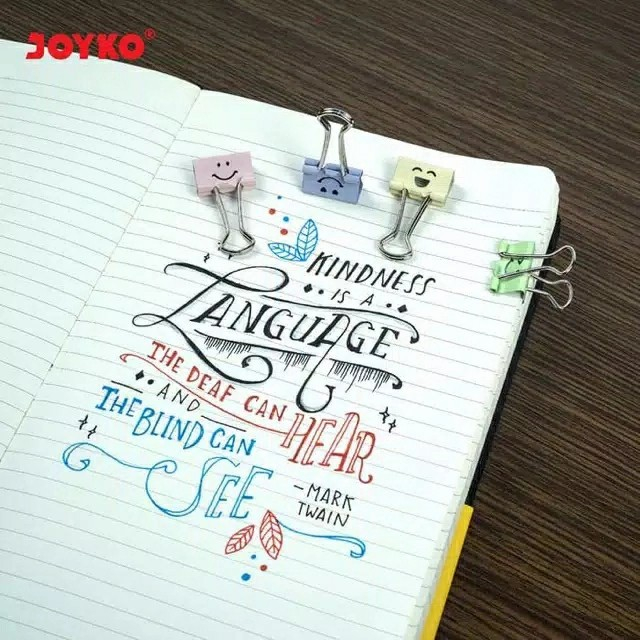 JOYKO®
KINDNESS
IS A
LANGUAGE
THE DEAF CAN
HEAR
AND
THE BLIND CAN
SEE
-MARK
TWAIN